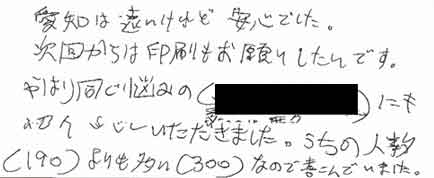 愛知は遠いけれど安心でした。
次回からは印刷もお願いしたんです。
やはり同じ悩みの()にも
いただきました。うちの人数
(190)よりも多い(300)なので喜こんでいました。